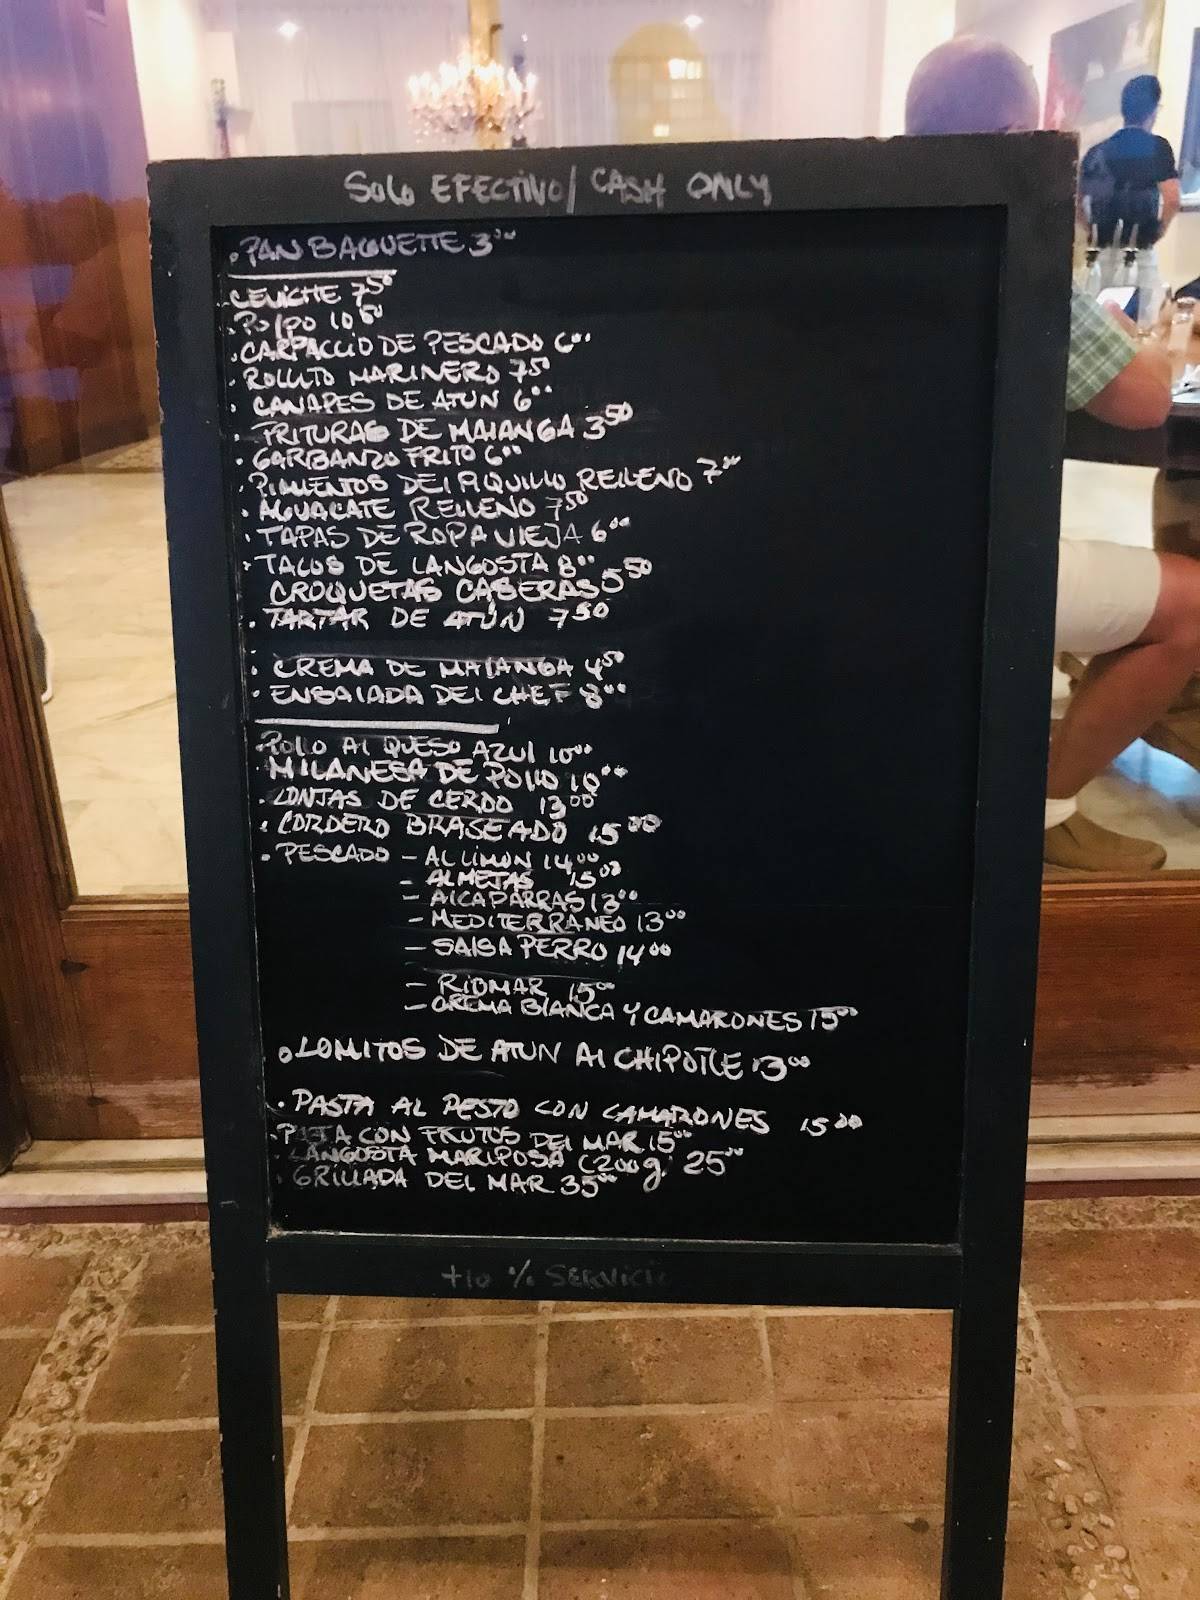 SOLO EFECTIVO/ CASH ONLY
• PAN BAGUETTE 3.00
CEVICHE 7.50
• Polpo 10.50
• CARPACCIO DE PESCADO 6.00
• ROLLITO MARINERO 7.50
• CANAPES DE ATUN 6.00
• FRITURAS DE MALANGA 3.50
• GARBANZO FRITO 6.00
• PIMIENTOS DEL PIQUILLO RELLENO 7.00
• AGUACATE RELLENO 7.50
• TAPAS DE ROPA VIEJA 6.00
• TACOS DE LANGOSTA 8.00
CROQUETAS CASERAS 5.50
• TARTAR DE ATÚN 7.50
• CREMA DE MALANGA 4.50
• ENSALADA DEL CHEF 8.00
POLLO AL QUESO AZUL 10.00
• MILANESA DE POLLO 10.00
• LONJAS DE CERDO 13.00
• CORDERO BRASEADO 15.00
• PESCADO – AL LIMON 14.00
– ALMEJAS 15.00
– ALCAPARRAS 13.00
– MEDITERRANEO 13.00
– SALSA PERRO 14.00
– RIOMAR 15.00
– CREMA BLANCA Y CAMARONES 15.00
• LOMITOS DE ATUN AL CHIPOTLE 13.00
• PASTA AL PESTO CON CAMARONES 15.00
• PASTA CON FRUTOS DEL MAR 15.00
• LANGOSTA MARIPOSA (200g) 25.00
• GRILLADA DEL MAR 35.00
+10 % SERVICIO